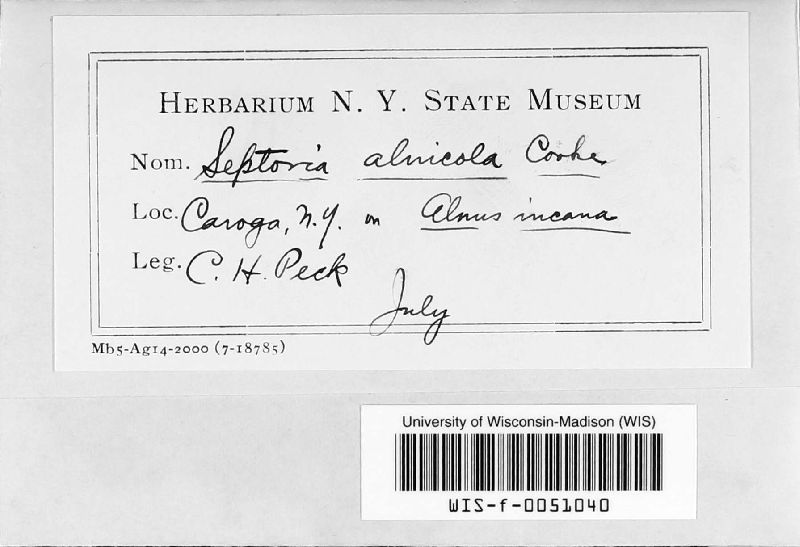 HERBARIUM N. Y. STATE MUSEUM
Nom. Septoria alnicola Cooke
Loc. Caroga, N.Y. on Alnus incana
Leg. C. H. Peck
July
Mb5-Ag14-2000 (7-18785)
University of Wisconsin-Madison (WIS)
WIS-f-0051040